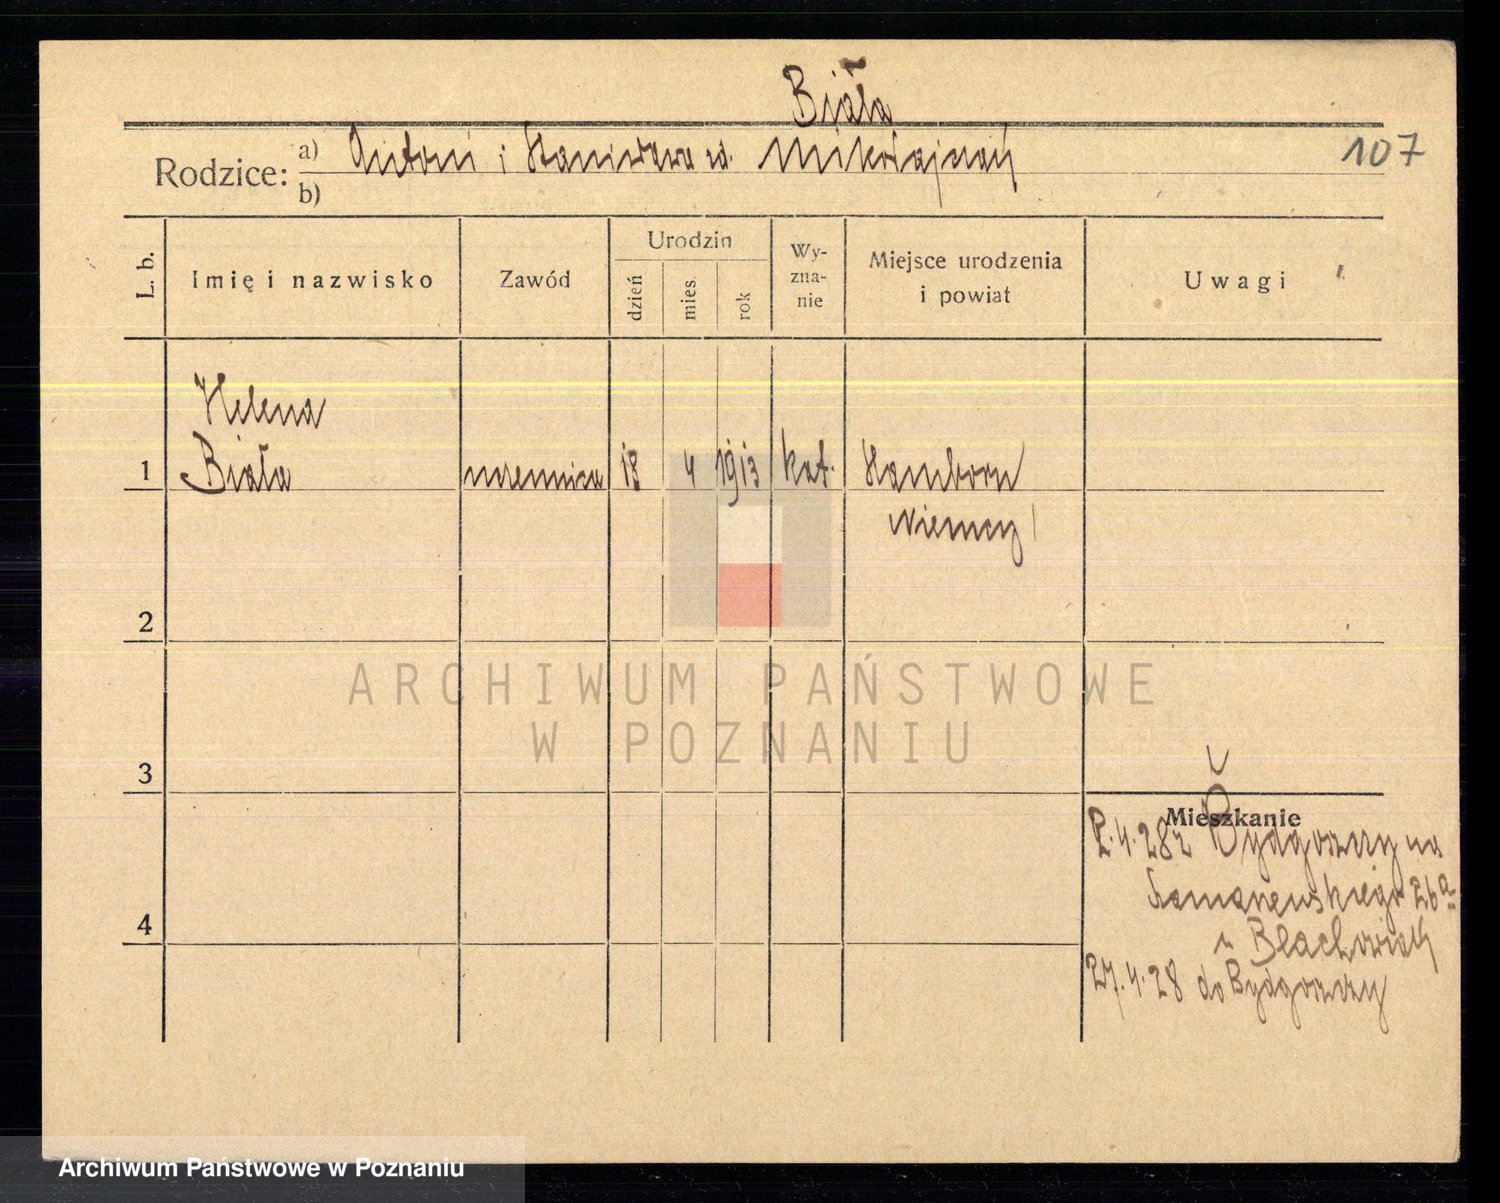 Biała
107
Rodzice: a) Antoni i Stanisława zd. Mikołajczak
b)
L. b. Imię i nazwisko Zawód Urodzin dzień mies. rok Wy-zna-nie Miejsce urodzenia i powiat Uwagi
Helena
1 Biała uczennica 18 4 1913 kat. Hamborn
Niemcy
2
ARCHIWUM PAŃSTWOWE
W POZNANIU
3
Mieszkanie
2.4.28 z Bydgoszczy na
26a
u Blachowiak
4
27.4.28 do Bydgoszczy
Archiwum Państwowe w Poznaniu